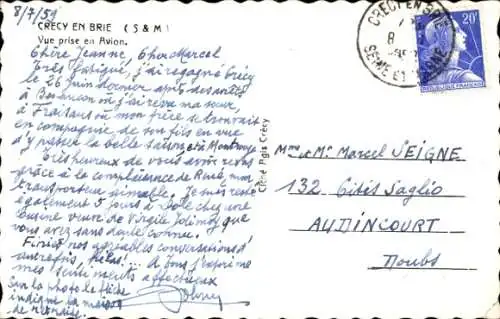 8/7/59
CRECY EN BRIE (S & M)
Vue prise en Avion.
Chère Jeanne, Cher Marcel
Très fatigué, j'ai regagné Crécy
le 26 Juin dernier après des arrêts
à Besançon où j'ai revu ma sœur,
à Fraisans où mon frère se trouvait
en compagnie de son fils en vue
d'y passer la belle saison, et à Montrouge
Très heureux de vous avoir revus
grâce à la complaisance de René, mon
transporteur aimable. Je suis resté
également 5 jours à Dole chez une
cousine veuve de Virgile Jolimoy que
vous avez sans doute connue.
Finies nos agréables conversations d'
autrefois, hélas!... A Tous j'exprime
mes sentiments affectueux
Sur la photo la flèche
indique la maison
de retraite.
Cliché Agis Crécy
CRECY EN BRIE
8
SEINE ET MARNE
20F
Mme et Mr Marcel SEIGNE
132 Cités Saglio
AUDINCOURT
Doubs